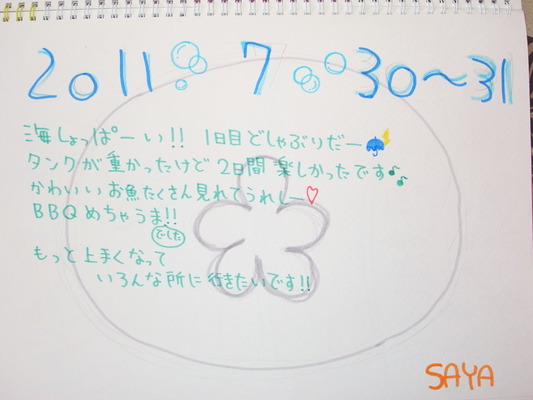 2011. 7. 30～31
海しょっぱーい!! 1日目どしゃぶりだー
タンクが重かったけど 2日間 楽しかったです♪
かわいい お魚たくさん見れてうれしー♡
BBQ めちゃうま!!
でした
もっと上手くなって
いろんな所に行きたいです!!
SAYA